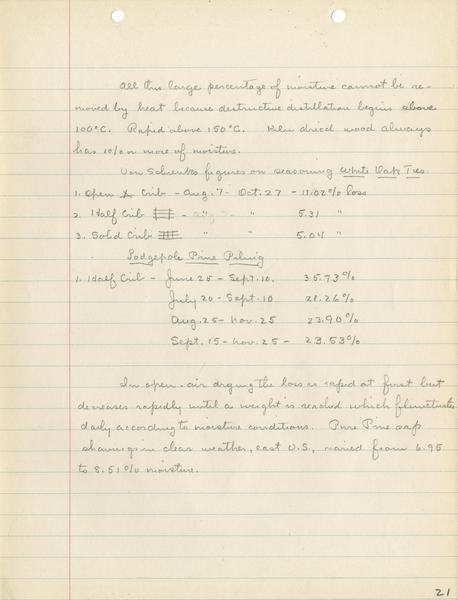 All this large percentage of moisture cannot be re-
moved by heat because destructive distillation begins above
100°C. Rapid above 150°C. Kiln dried wood always
has 10% or more of moisture.
Von Schrenks figures on seasoning White Oak Ties.
1. Open Crib - Aug. 7 - Oct. 27 - 11.02% loss
2. Half Crib - Aug 7 - " 5.31 "
3. Solid Crib " " 5.04 "
Lodgepole Pine Piling
1. Half Crib - June 25 - Sept. 10. 35.73%
July 20 - Sept. 10 28.26%
Aug. 25 - Nov. 25 23.90%
Sept. 15 - Nov. 25 - 23.53%
In open-air drying the loss is rapid at first but
decreases rapidly until a weight is reached which fluctuates
daily according to moisture conditions. Pine sap
shavings in clear weather, east U.S., varied from 6.95
to 8.51% moisture.
21